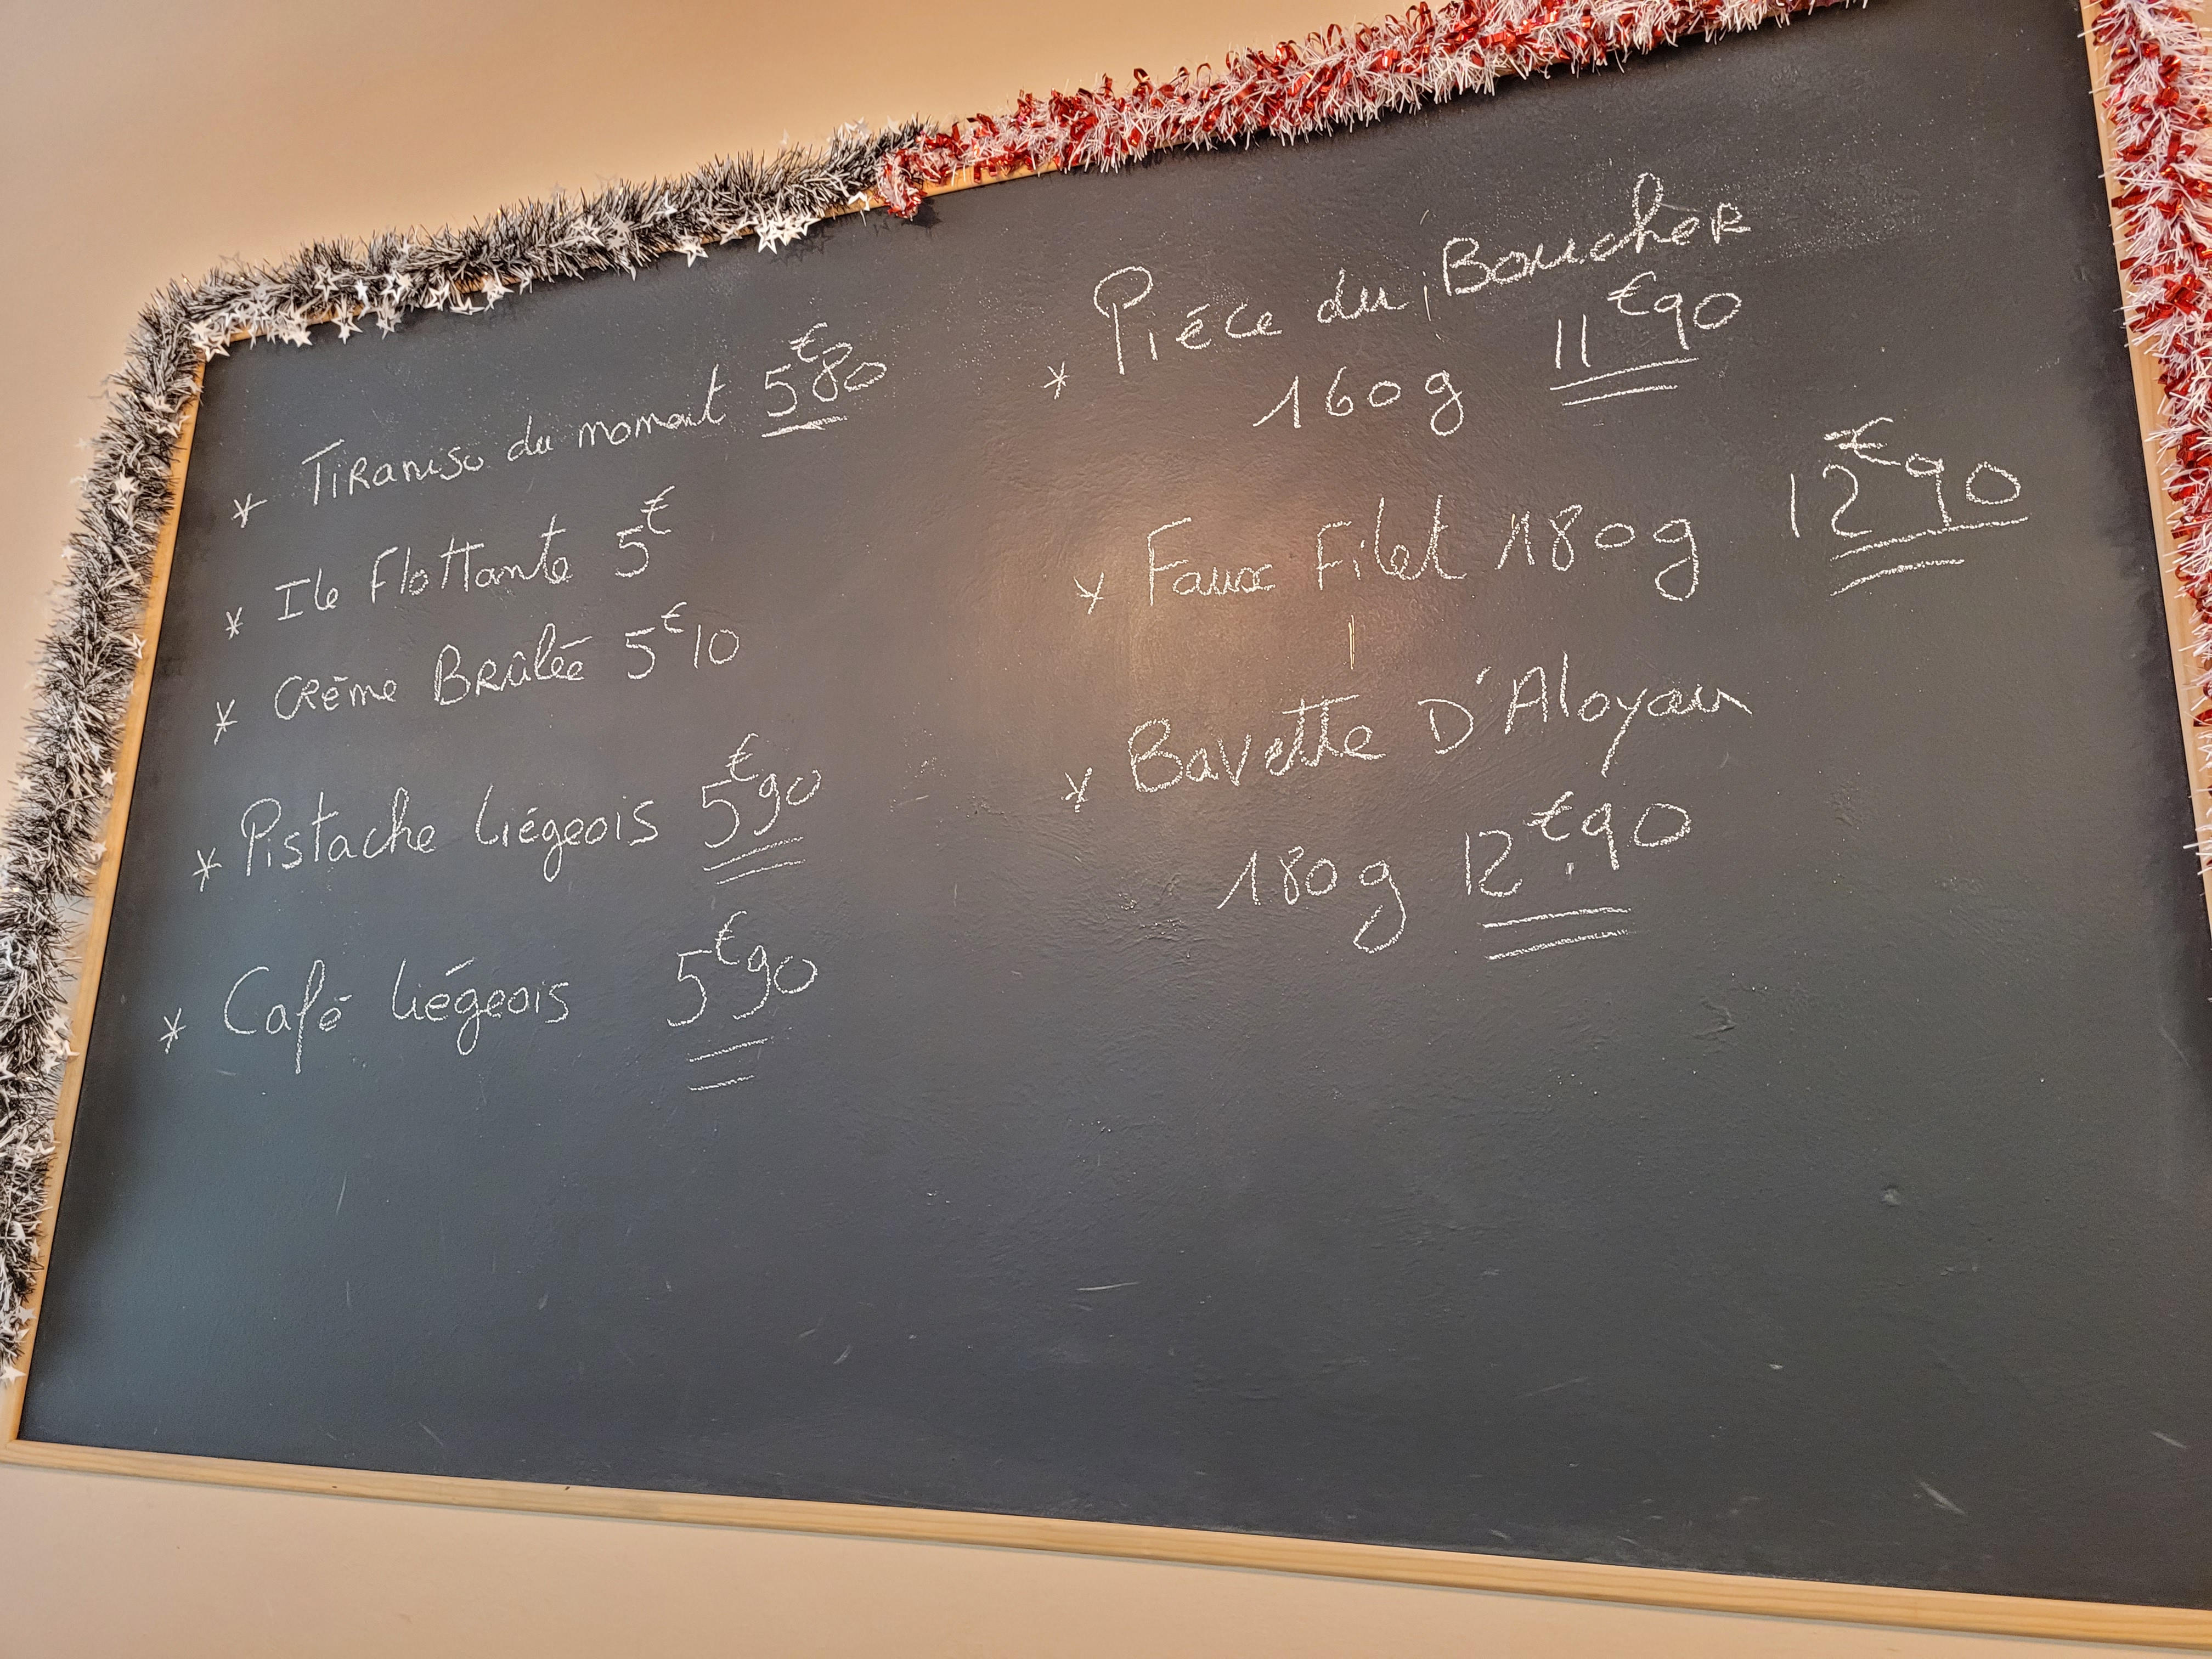 * Tiramisu du moment 5€80
* Ile Flottante 5€
* Crème Brûlée 5€10
* Pistache liégeois 5€90
* Café liégeois 5€90
* Piéce du Boucher
160g 11€90
* Faux Filet 180g 12€90
* Bavette D'Aloyau
180g 12€90